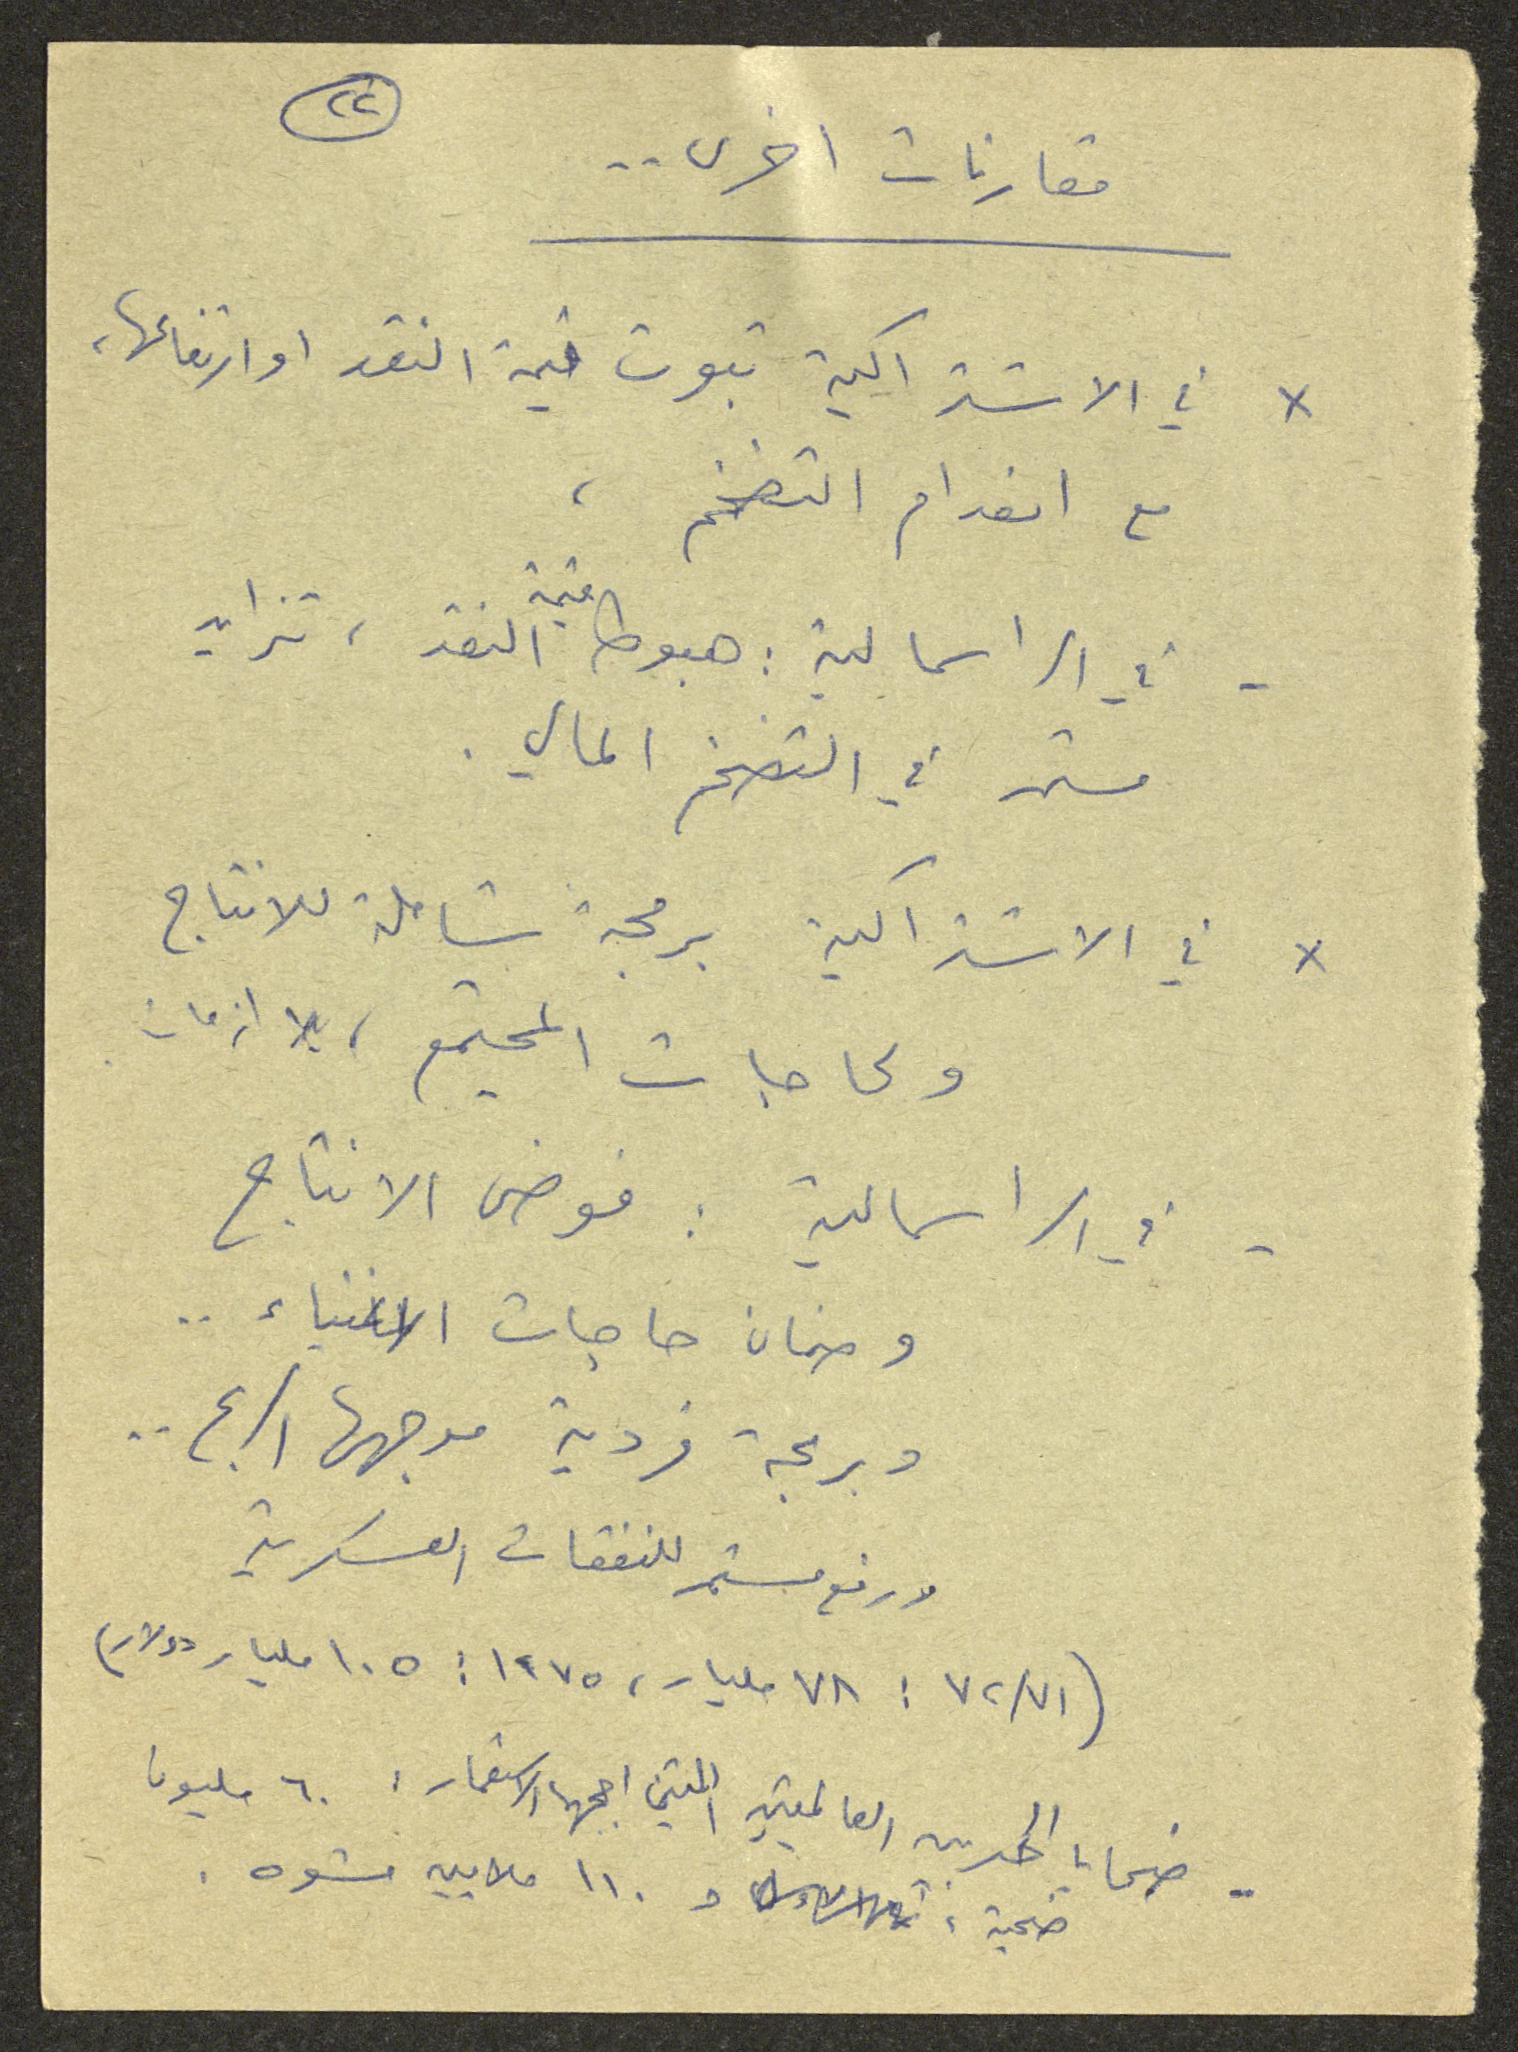 ٢٢
مقارنات اخرى..
× في الاشتراكية ثبوت قيمة النقد او ارتفاعها،
مع انعدام التضخم ،
- في الراسمالية : هبوط قيمة النقد ، تزايد
مستمر في التضخم المالي .
× في الاشتراكية برمجة شاملة للانتاج
ولحاجات المجتمع ، بلا ازمات .
- في الراسمالية : فوضى الانتاج
وضمان حاجات الاغنياء ..
وبرمجة فردية موجهها الربح ..
ورفع مستمر للنفقات العسكرية
(٧٢/٧١ : ٧٨ مليار ، ١٩٧٥ : ١٠٥ مليار دولار)
- ضحايا الحربين العالميتين اللتين اججهما الاستعمار : ٦٠ مليونا
ضحية ، و ١١٠ ملايين مشوه .